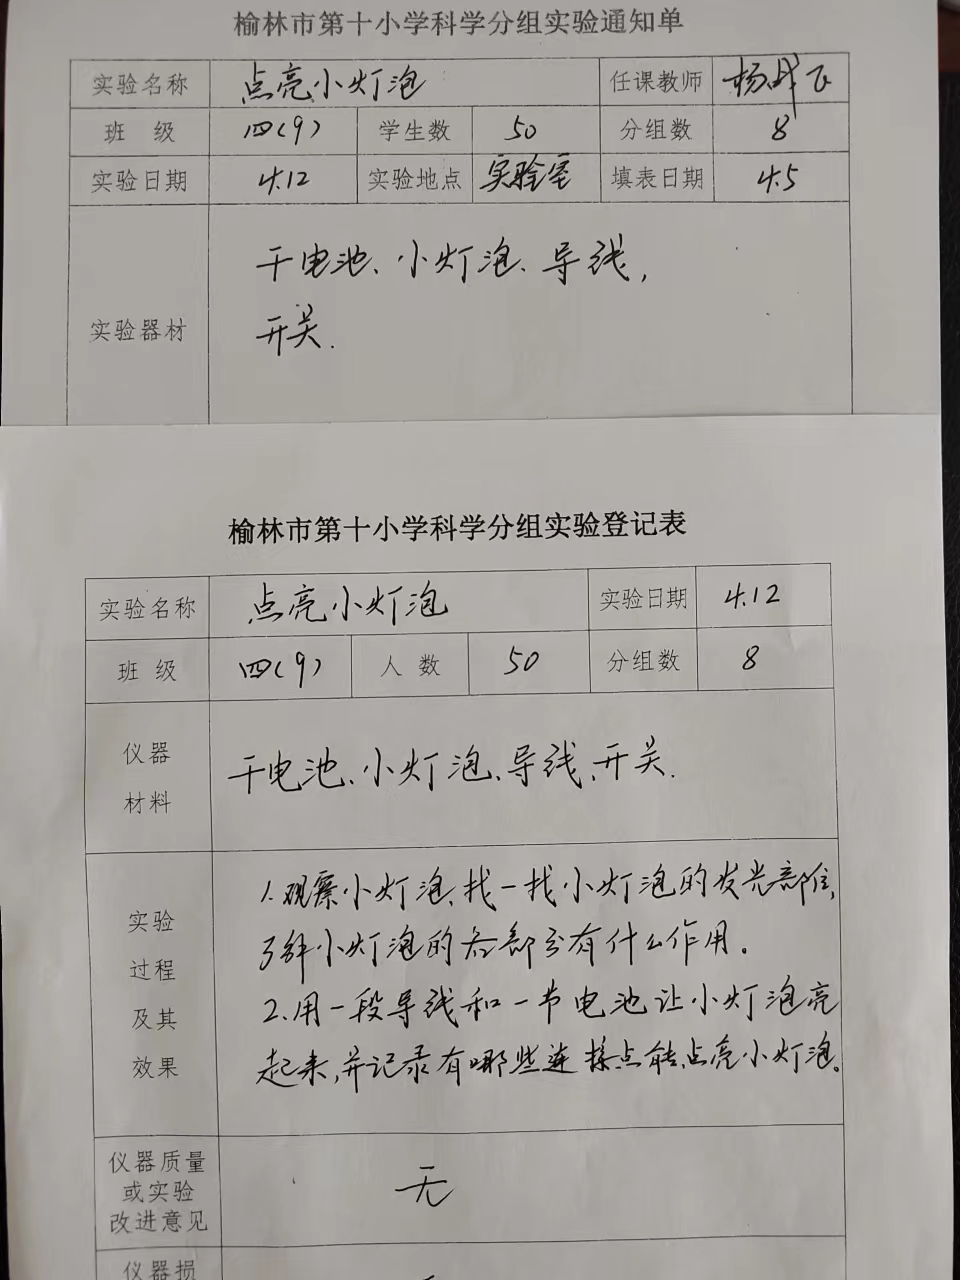 榆林市第十小学科学分组实验通知单
实验名称 点亮小灯泡 任课教师 杨
班 级 四(9) 学生数 50 分组数 8
实验日期 4.12 实验地点 实验室 填表日期 4.5
实验器材 干电池、小灯泡、导线,
开关.
榆林市第十小学科学分组实验登记表
实验名称 点亮小灯泡 实验日期 4.12
班 级 四(9) 人 数 50 分组数 8
仪器
材料
干电池、小灯泡、导线、开关.
实验
过程
及其
效果
1.观察小灯泡,找一找小灯泡的发光部位,
了解小灯泡的各部分有什么作用。
2.用一段导线和一节电池让小灯泡亮
起来,并记录有哪些连接点能点亮小灯泡。
仪器质量
或实验
改进意见
无
仪器损